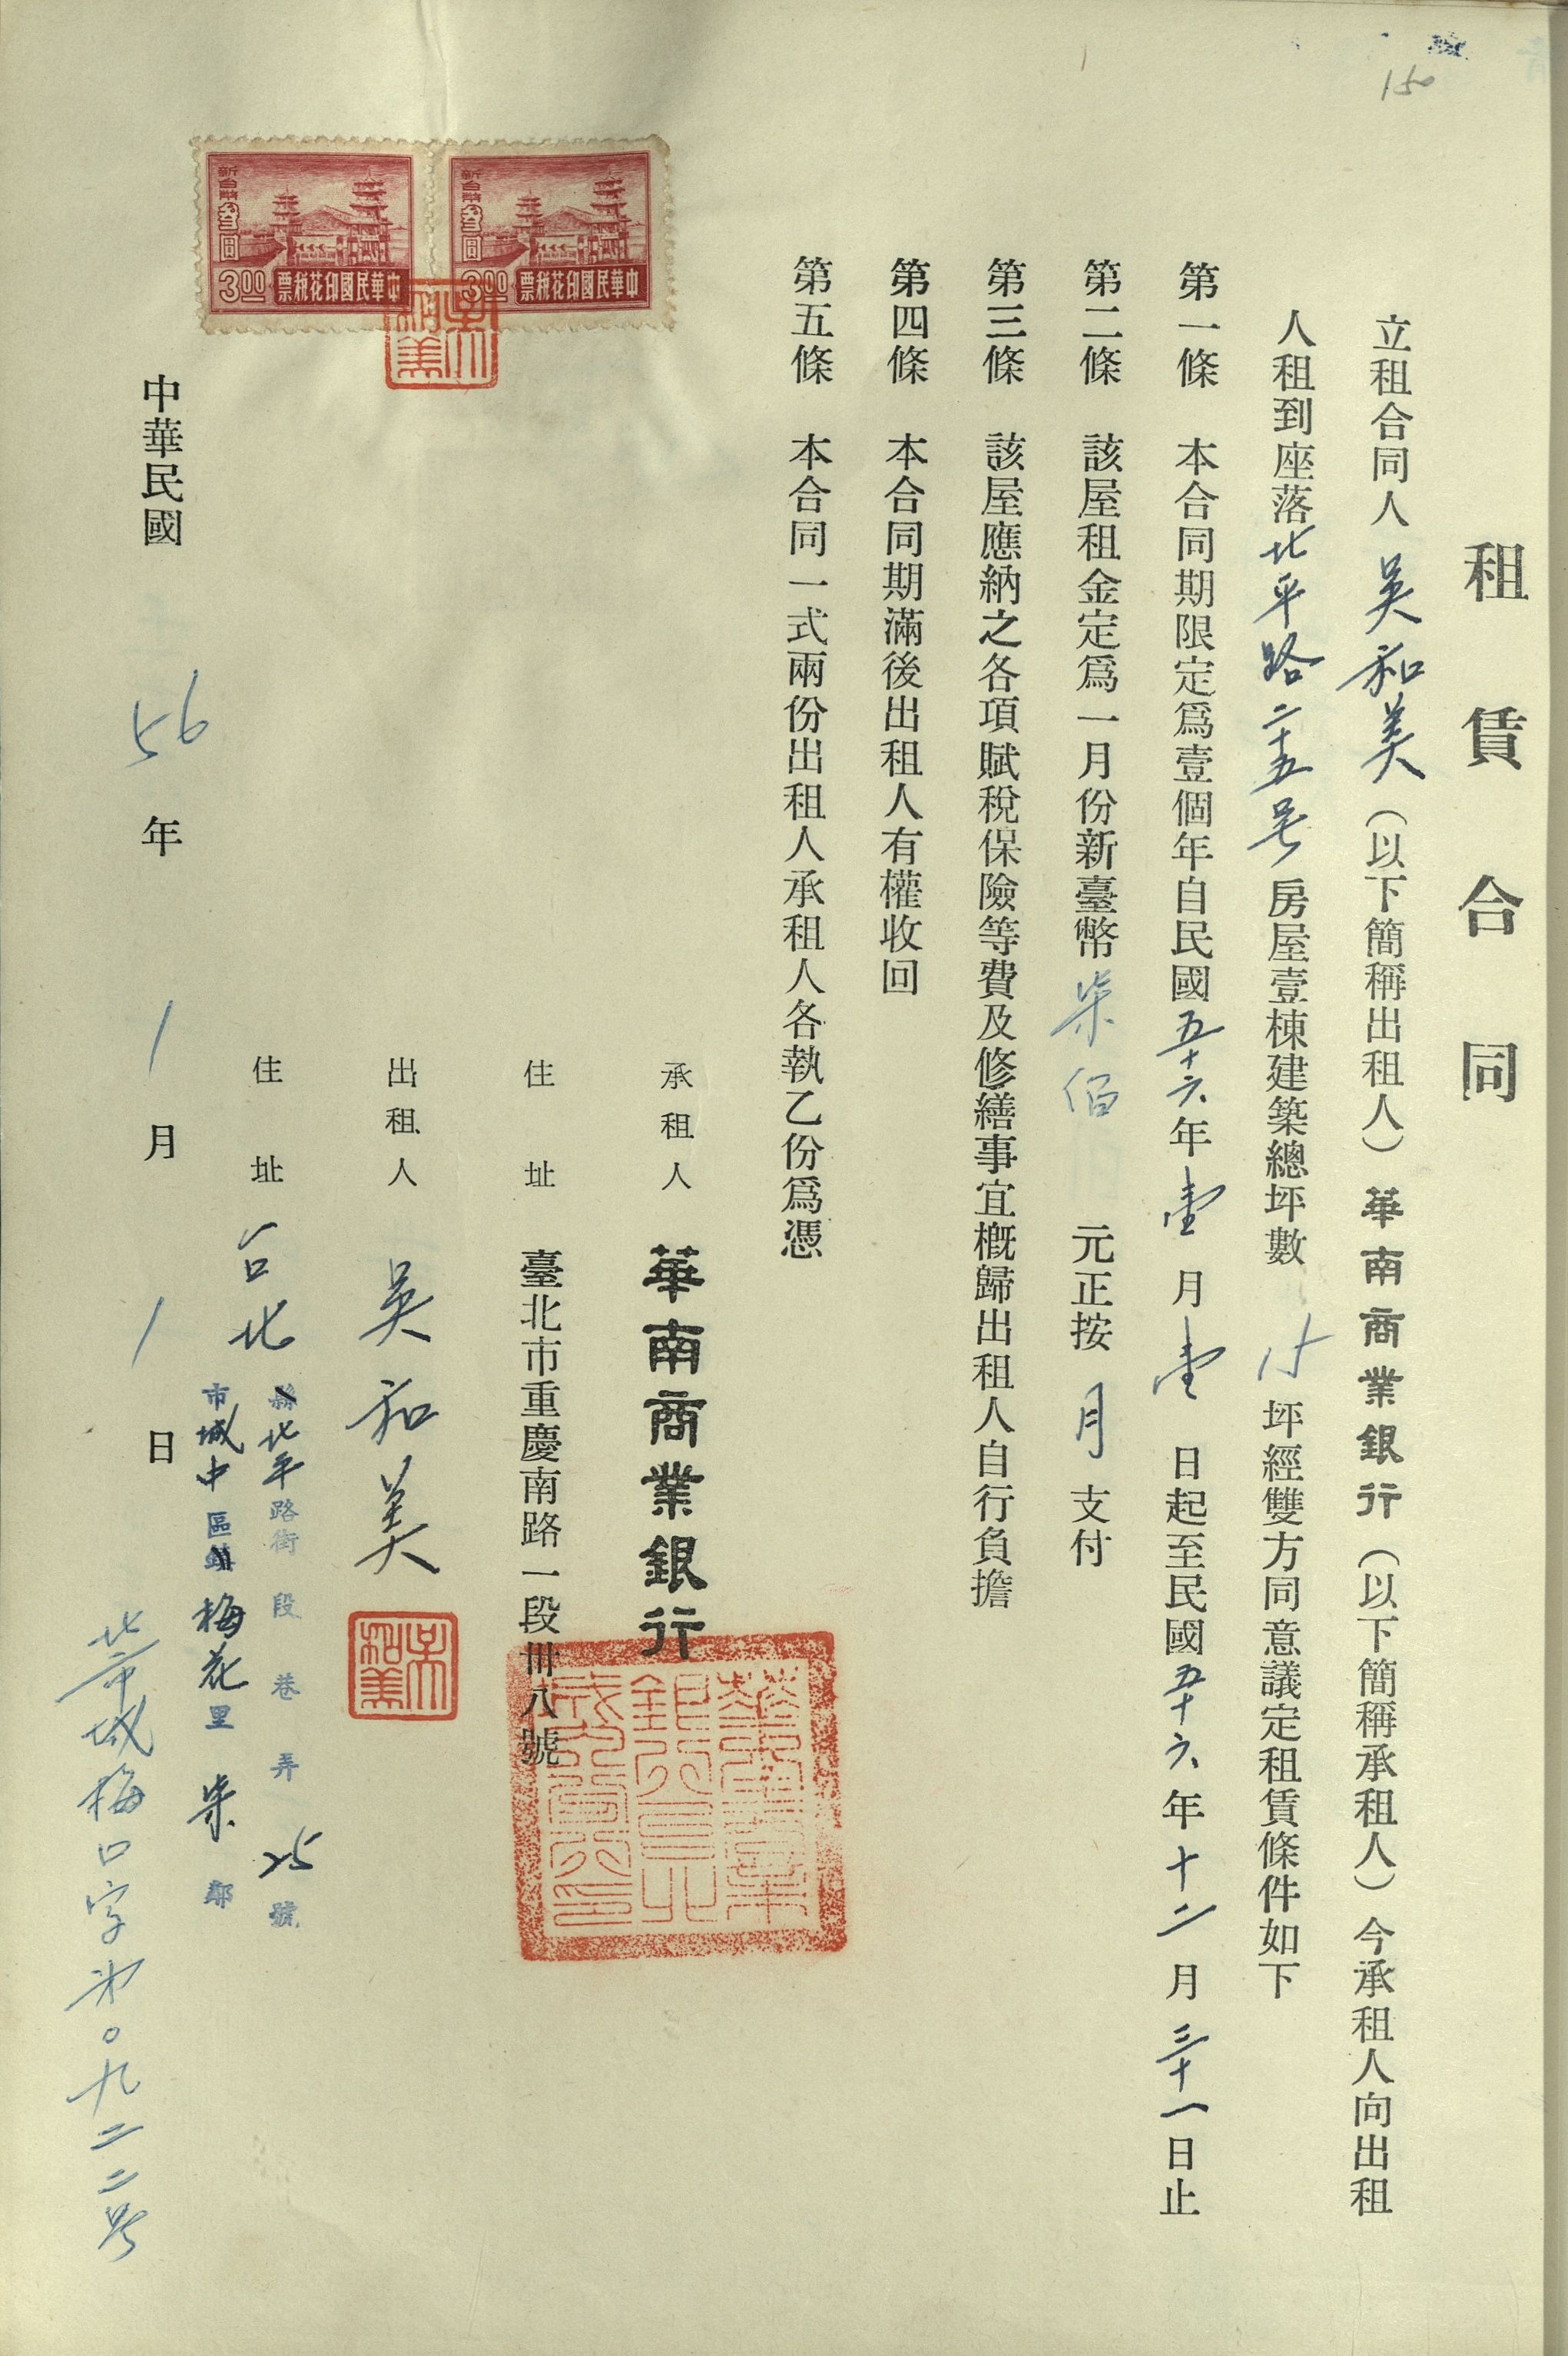 150
租賃合同
立租合同人 吳和美（以下簡稱出租人）華南商業銀行（以下簡稱承租人）今承租人向出租
人租到座落北平路二十五号房屋壹棟建築總坪數 15 坪經雙方同意議定租賃條件如下
第一條 本合同期限定爲壹個年自民國五十六年壹月壹日起至民國五十六年十二月三十一日止
第二條 該屋租金定爲一月份新臺幣柒佰 元正按月支付
第三條 該屋應納之各項賦稅保險等費及修繕事宜概歸出租人自行負擔
第四條 本合同期滿後出租人有權收回
第五條 本合同一式兩份出租人承租人各執乙份爲憑
新台幣叁圓
3.00
票稅花印國民華中
新台幣叁圓
3.00
票稅花印國民華中
吳和美
承租人 華南商業銀行
住址 臺北市重慶南路一段卅八號
出租人 吳和美
吳和美
住址 台北
縣北平路街 段 巷 弄 25 號
市城中區鎮梅花里 柒 鄰
中華民國 56 年 1 月 1 日
城梅口字第〇九二二号